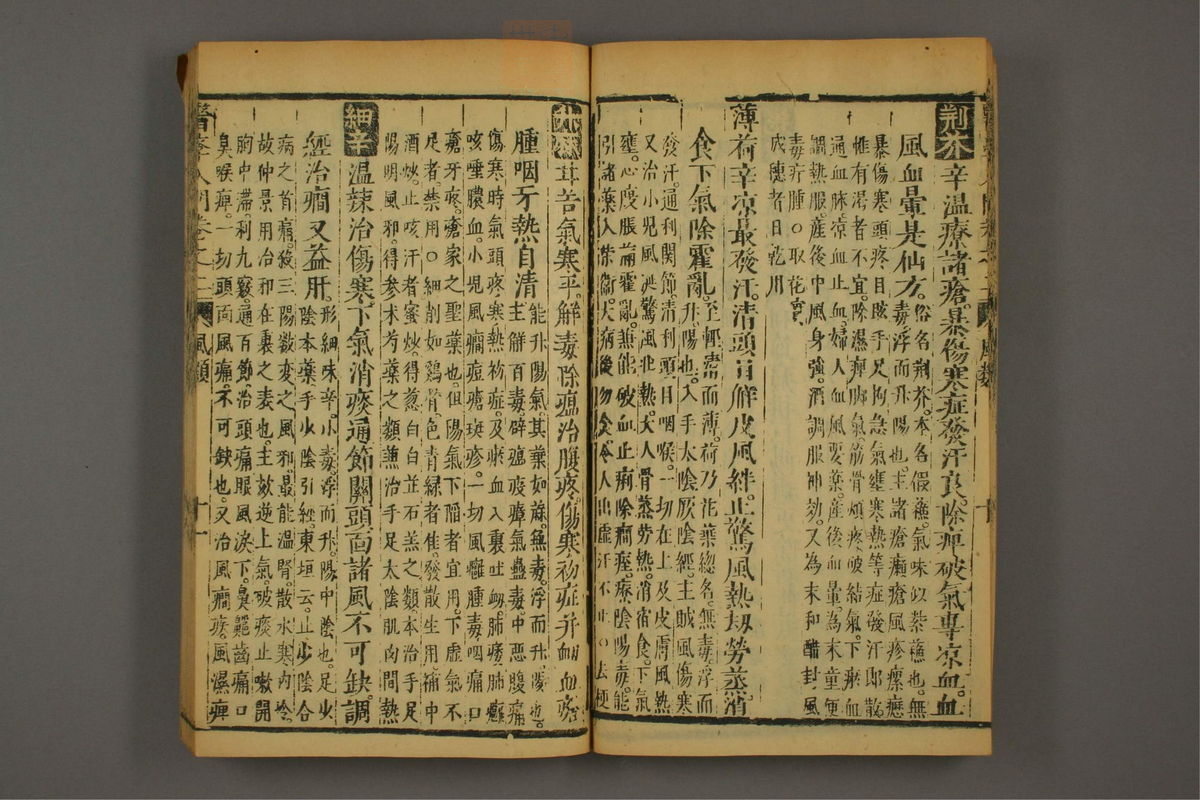 荆芥辛温療諸瘡暴傷寒症發汗良除痺破氣專凉血血
風血暈是仙方俗名荆芥本名假蘇氣味似紫蘇也無
毒浮而升陽也主諸瘡癩瘡風疹瘰癧
暴傷寒頭疼目眩手足拘急氣壅寒熱等症發汗即散
惟有渴者不宜除濕痺脚氣筋骨煩疼破結氣下瘀血
通血脉凉血止血婦人血風要藥產後血暈為末童便
調熱服產後中風身強酒調服神効又為末和醋封風
毒疔腫○取花實
成穗者日乾用
薄荷辛凉最發汗清頭目解皮風絆止驚風熱刼勞蒸消
食下氣除霍亂至輕清而薄荷乃花葉総名無毒浮而
升陽也入手太陰厥陰經主賊風傷寒
發汗通利關節清利頭目咽喉一切在上及皮膚風熱
又治小兒風涎驚風壯熱大人骨蒸勞熱消宿食下氣
壅心腹脹滿霍亂兼能破血止痢除癎痓療陰陽毒能
引諸藥入榮衛大病後勿食令人出虛汗不止○去梗
茸苦氣寒平解毒除瘟治腹疼傷寒初症并衂血瘡
腫咽牙熱自清能升陽氣其葉如蔴無毒浮而升陽也
主解百毒辟瘟疫瘴氣蠱毒中惡腹痛
傷寒時氣頭疼寒熱初症及瘀血入裏吐衂肺痿肺癰
咳唾膿血小兒風癎痘瘡斑疹一切風癰腫毒咽痛口
瘡牙疼瘡家之聖藥也但陽氣下陷者宜用下虛氣不
足者禁用○細削如鷄骨色青緑者佳發散生用補中
酒炒止咳汗者蜜炒得葱白白芷石羔之類本治手足
陽明風邪得參术芍藥之類兼治手足太陰肌肉間熱
細辛温辣治傷寒下氣消痰通節關頭面諸風不可缺調
經治癎又益肝形細味辛小毒浮而升陽中陰也足少
陰本藥手少陰引經東垣云止少陰合
病之首痛殺三陽数变之風邪最能温腎散水寒内冷
故仲景用治邪在裏之表也主欬逆上氣破痰止嗽開
胸中滯利九竅通百節治頭痛眼風淚下鼻齆齒痛口
臭喉痺一切頭面風痛不可缺也又治風癎痰風濕痺
醫學入門卷之二 風類 十一